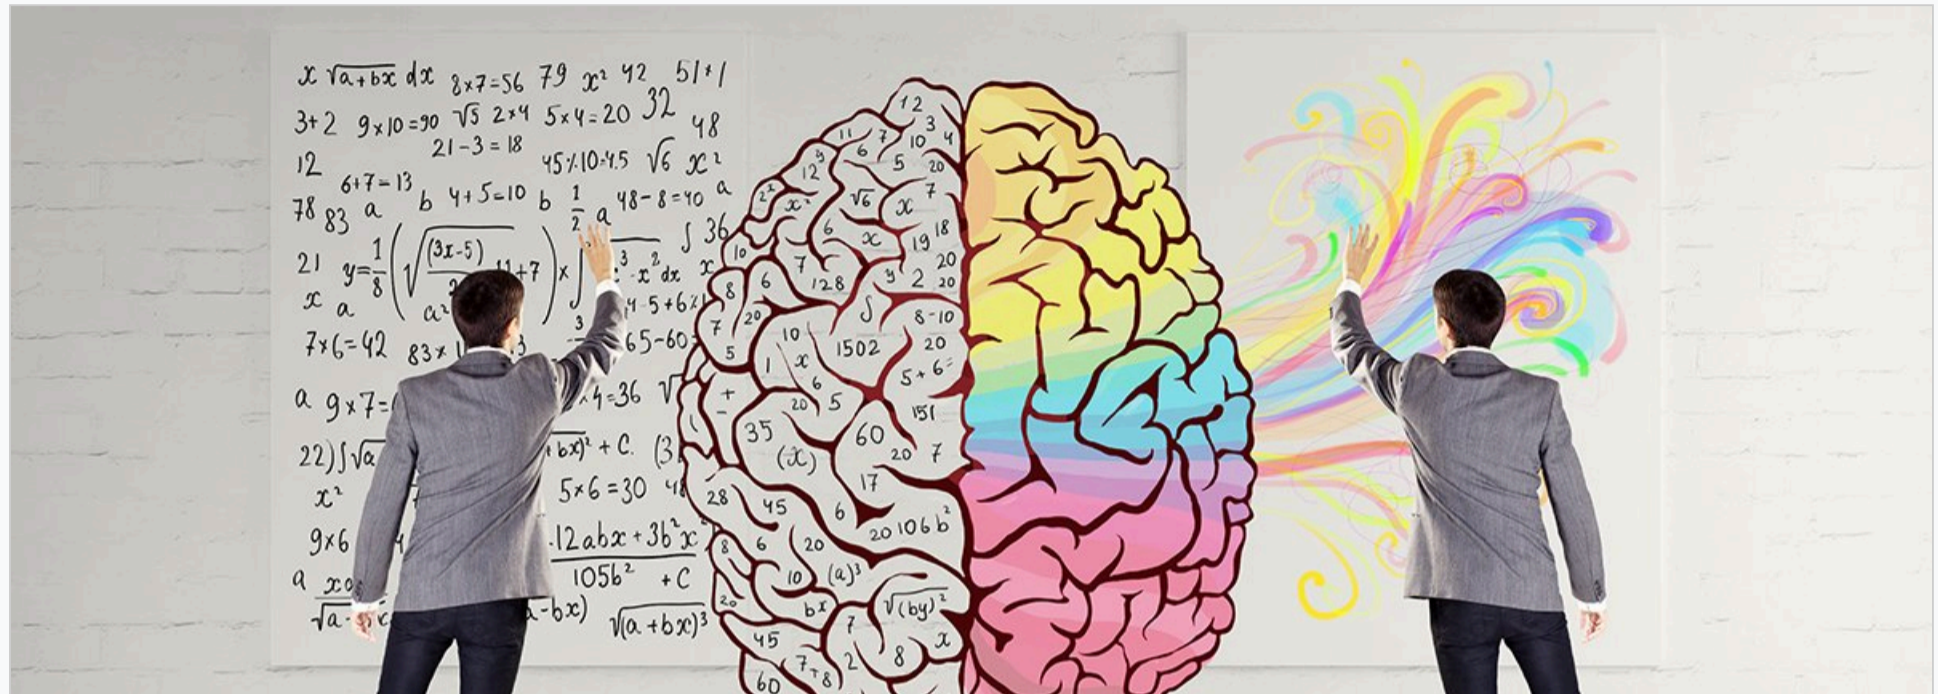 x √(a+bx) dx 8×7=56 79 x² 42 51+1
3+2 9×10=90 √5 2×4 5×4=20 32
21-3=18 48
12 45%10=4.5 √6 x²
6+7=13 b 4+5=10 b 1/2 a 48-8=40 a
78 83 a
∫ 36
21 y=1/8 (√(3x-5) +7) × ∫ x³-x² dx x
x a a² 4-5+6%
3
7×6=42 83× 3 65-60=
a 9×7= ×4=36 √
22) ∫√a +bx)² + C. (3
x² 5×6=30 48
9×6 12abx+3b²x²
105b² +C
a
√a- a-bx) √(a+bx)³
12
11 7 3
6 10 4
y 12 5 20
2ˣ x² √6 7
x
6 x 19 18
10 7 20
8 6 128 y 2 20
7 20 ∫ 8-10
10 1502 20
5 1 x 5+6=
+ 6
- 20 5 151
35 60
(x) 20 7
17
28 45 6
20 106b²
8 6 20
10 (a)³
20 bx √(by)²
7
45 x
7+8 2 8
60